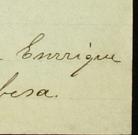 Enrrique
besa.